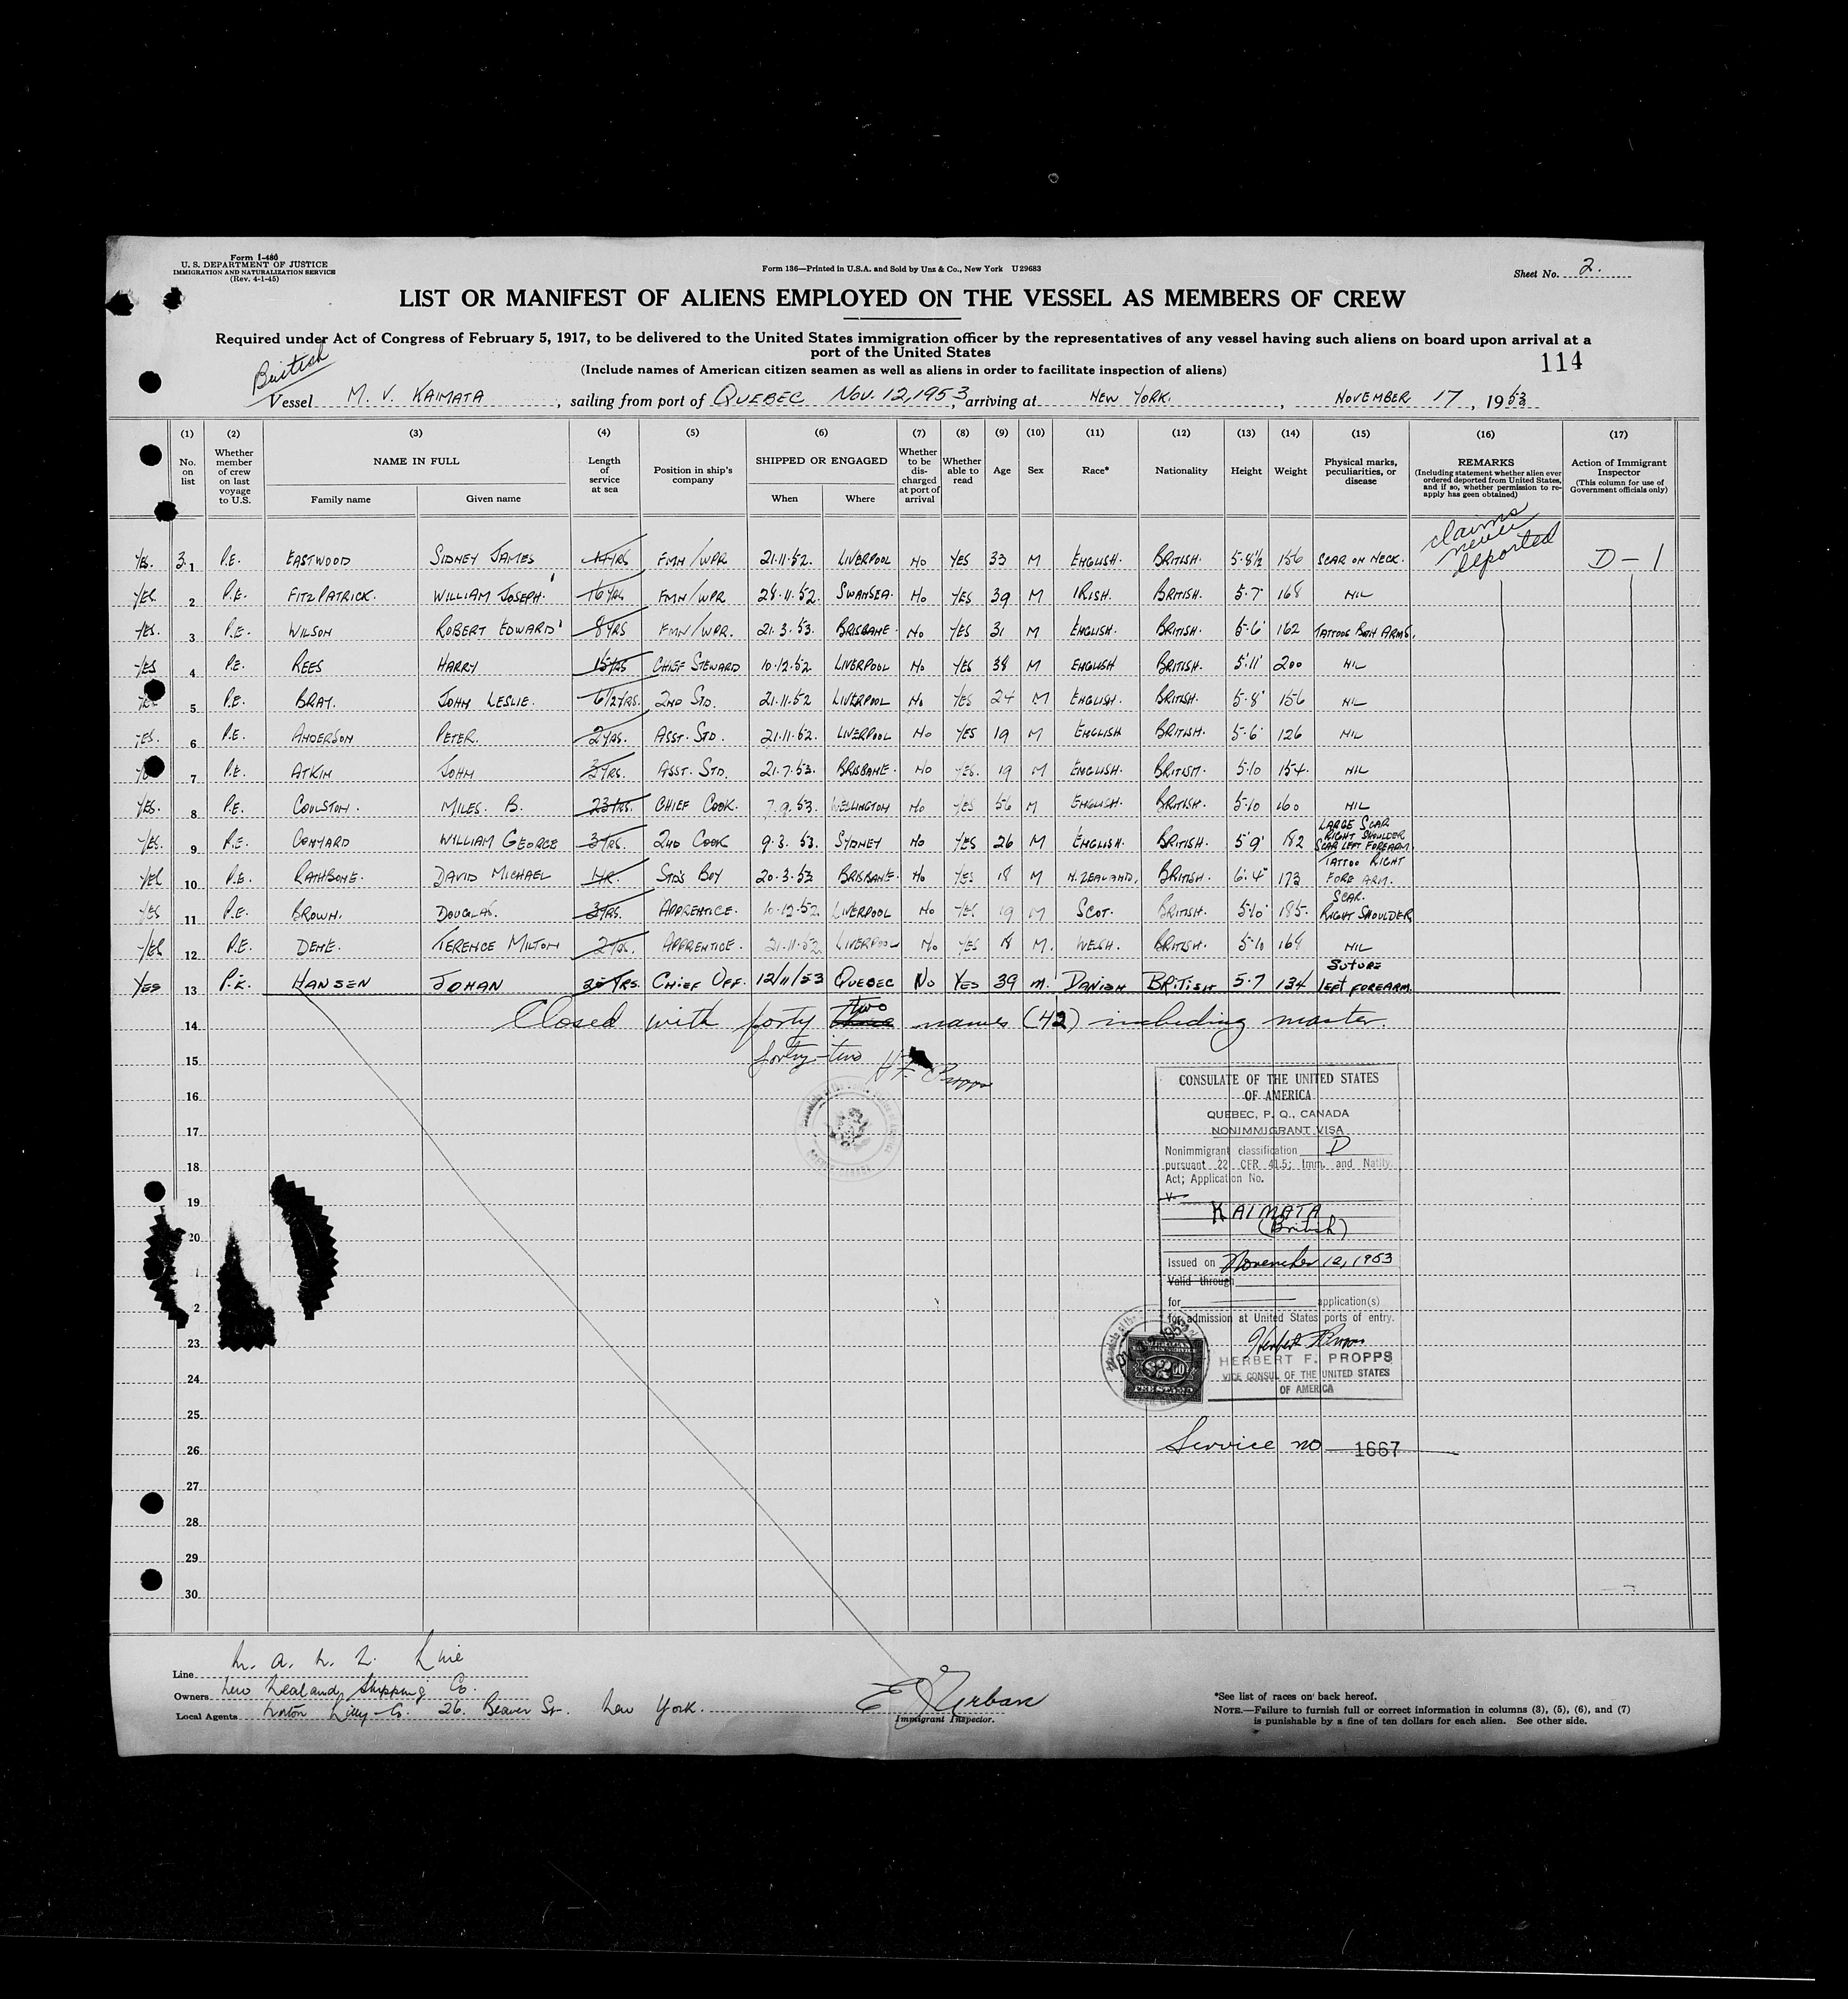 Form I-480
U. S. DEPARTMENT OF JUSTICE
IMMIGRATION AND NATURALIZATION SERVICE
(Rev. 4-1-45)
Form 136—Printed in U.S.A. and Sold by Unz & Co., New York U29683
Sheet No. 2.
LIST OR MANIFEST OF ALIENS EMPLOYED ON THE VESSEL AS MEMBERS OF CREW
Required under Act of Congress of February 5, 1917, to be delivered to the United States immigration officer by the representatives of any vessel having such aliens on board upon arrival at a
port of the United States
114
(Include names of American citizen seamen as well as aliens in order to facilitate inspection of aliens)
British
Vessel M. V. KAIMATA, sailing from port of QUEBEC NOV. 12, 1953, arriving at NEW YORK, NOVEMBER 17, 1953
(1) (2) (3) (4) (5) (6) (7) (8) (9) (10) (11) (12) (13) (14) (15) (16) (17)
No. on list
Whether member of crew on last voyage to U.S.
NAME IN FULL
Family name Given name
Length of service at sea
Position in ship's company
SHIPPED OR ENGAGED
When Where
Whether to be discharged at port of arrival
Whether able to read
Age
Sex
Race*
Nationality
Height
Weight
Physical marks, peculiarities, or disease
REMARKS
(Including statement whether alien ever ordered deported from United States, and if so, whether permission to re-apply has geen obtained)
Action of Immigrant Inspector
(This column for use of Government officials only)
claims never deported
YES. 31 P.E. EASTWOOD SIDNEY JAMES YRS FMN/WPR 21.11.52. LIVERPOOL NO YES 33 M ENGLISH. BRITISH. 5-8½ 156 SCAR ON NECK. D-1
YES 2 P.E. FITZPATRICK. WILLIAM JOSEPH. 16 YRS FMN/WPR 28.11.52. SWANSEA. NO YES 39 M IRISH. BRITISH. 5-7 168 NIL
YES. 3 P.E. WILSON ROBERT EDWARD 8 YRS FMN/WPR. 21.3.53. BRISBANE. NO YES 31 M ENGLISH. BRITISH. 5-6 162 TATTOOS BOTH ARMS.
YES 4 P.E. REES HARRY 15 YRS CHIEF STEWARD 10.12.52 LIVERPOOL NO YES 38 M ENGLISH BRITISH. 5-11 200 NIL
5 P.E. BRAY. JOHN LESLIE. 6 1/2 YRS. 2ND STD. 21.11.52 LIVERPOOL NO YES 24 M ENGLISH. BRITISH. 5-8 156 NIL
YES. 6 P.E. ANDERSON PETER. 2 YRS. ASST. STD. 21.11.52. LIVERPOOL NO YES 19 M ENGLISH BRITISH. 5-6 126 NIL
7 P.E. ATKIN JOHN 3 YRS. ASST. STD. 21.7.53. BRISBANE. NO YES. 19 M ENGLISH. BRITISH. 5-10 154. NIL
YES. 8 P.E. COULSTON. MILES. B. 23 YRS. CHIEF COOK. 7.9.53. WELLINGTON NO YES 56 M ENGLISH. BRITISH. 5-10 160 NIL
YES. 9 P.E. CONYARD WILLIAM GEORGE 3 YRS. 2ND COOK 9.3.53. SYDNEY NO YES 26 M ENGLISH. BRITISH. 5-9 182 LARGE SCAR RIGHT SHOULDER SCAR LEFT FOREARM.
YES 10 P.E. RATHBONE. DAVID MICHAEL 1 YR. STD'S BOY 20.3.53 BRISBANE. NO YES 18 M N. ZEALAND. BRITISH. 6-4 173 TATTOO RIGHT FORE ARM.
YES 11 P.E. BROWN. DOUGLAS. 3 YRS. APPRENTICE. 10.12.52. LIVERPOOL NO YES 19 M SCOT. BRITISH. 5-10 185. SCAR. RIGHT SHOULDER
YES 12 P.E. DENE. TERENCE MILTON 2 YRS. APPRENTICE. 21.11.52 LIVERPOOL NO YES 18 M. WELSH. BRITISH. 5-10 168 NIL
YES 13 P.E. HANSEN JOHAN YRS. CHIEF OFF. 12/11/53 QUEBEC NO YES 39 M. DANISH BRITISH 5-7 134 SUTURE LEFT FOREARM.
14 Closed with forty two names (42) including master.
15 forty-two H F Propps
16
17
18
19
20
1
2
23
24
25
26
27
28
29
30
CONSULATE OF THE UNITED STATES
OF AMERICA
QUEBEC, P. Q., CANADA
NONIMMIGRANT VISA
Nonimmigrant classification D
pursuant 22 CFR 41.5; Imm. and Natlty.
Act; Application No.
KAIMATA
(British)
Issued on November 12, 1953
Valid through
for application(s)
for admission at United States ports of entry.
Herbert F. Propps
HERBERT F. PROPPS
VICE CONSUL OF THE UNITED STATES
OF AMERICA
FEE STAMP
Service no 1667
Line M. A. N. Z. Line
Owners New Zealand Shipping Co.
Local Agents Norton Lilly Co. 26. Beaver St. New York.
E Urban
Immigrant Inspector.
*See list of races on back hereof.
NOTE.—Failure to furnish full or correct information in columns (3), (5), (6), and (7)
is punishable by a fine of ten dollars for each alien. See other side.